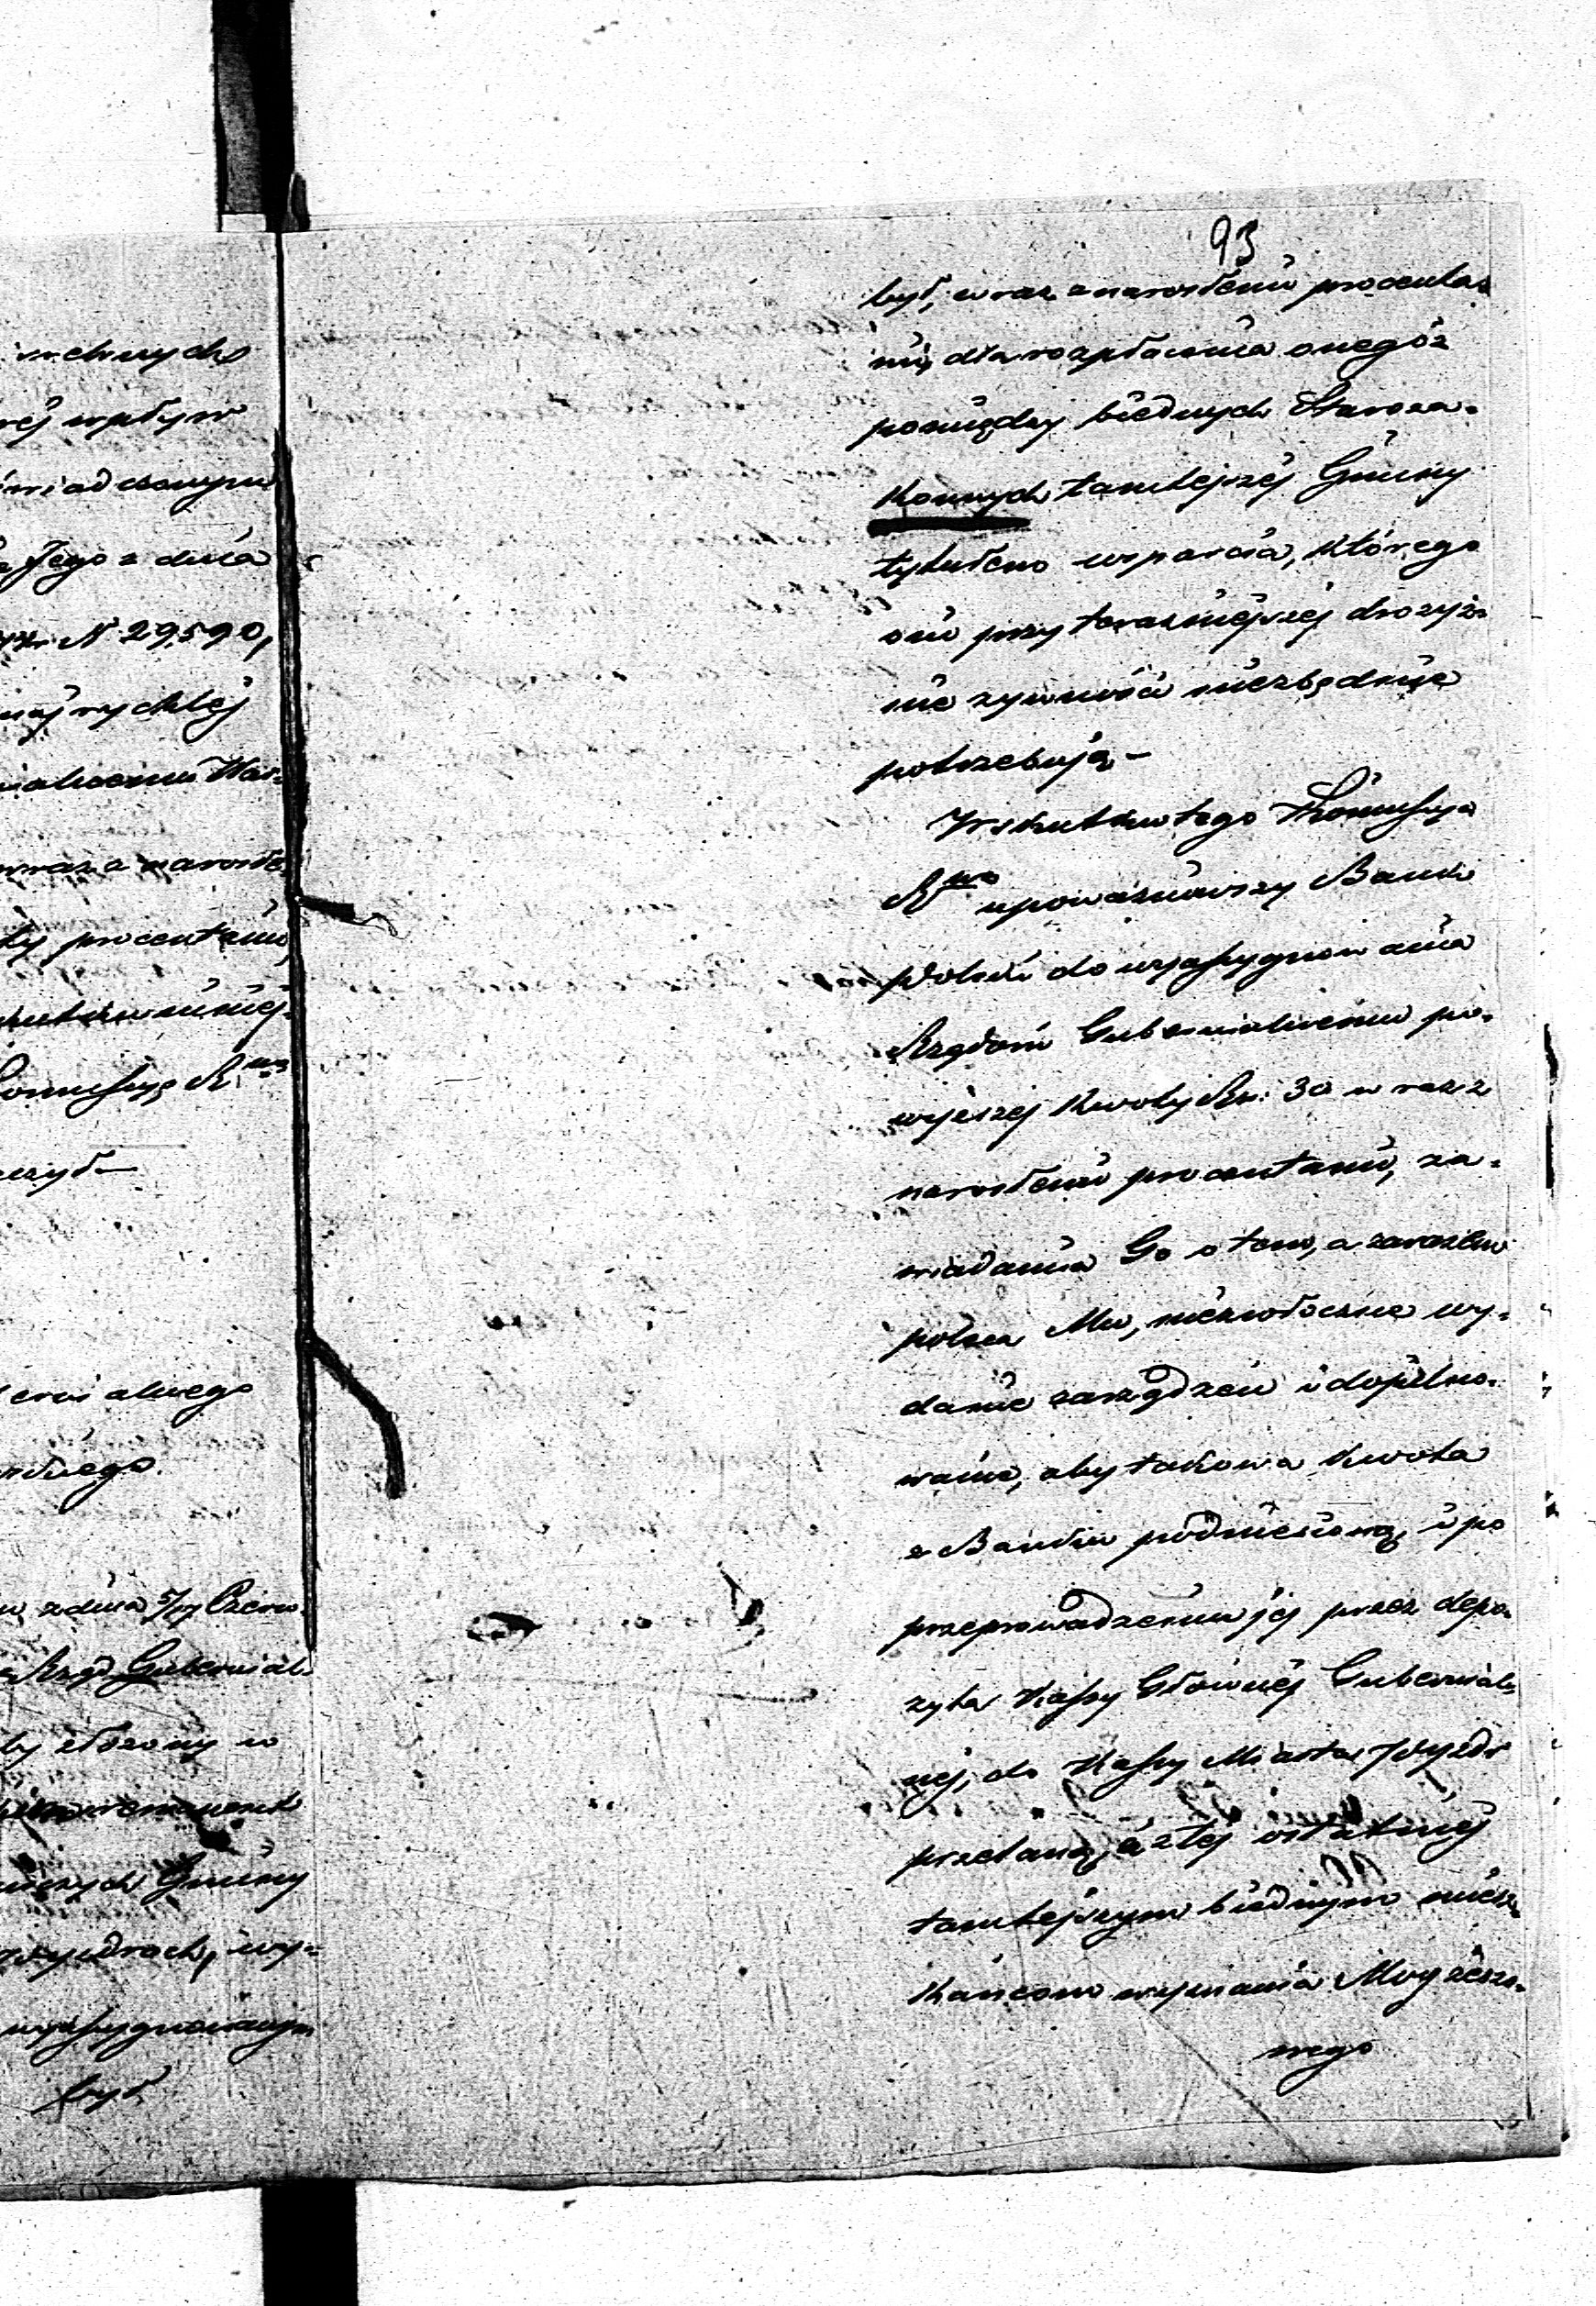 wnych
rej wpływ
wiadomym
Jego z dnia
N 29,590,
najrychlej
nialnemu War-
wraz z narosłe
procentami,
skutku niniej-
Kommissyą R.
Gubernialnego
z dnia 5/17 Czerw.
Rząd Gubernial-
złożony w
remanent
Gminy
wy-
wyassygnowanym
był
93
był, wraz z narosłemi procenta-
mi, dla rozpłacenia onegoż
pomiędzy biednych Staroza-
konnych tamtejszéj Gminy
tytułem wsparcia, którego
oni przy teraźniejszéj drożyź-
nie żywności niezbędnie
potrzebują.—
W skutku tego Kommissya
R. upoważniwszy Bank
Polski do wyassygnowania
Rządowi Gubernialnemu po-
wyższej kwoty Rs: 30 wraz z
narosłemi procentami, za-
wiadamia Go o tem, a zarazem
poleca Mu, niezwłoczne wy-
danie zarządzeń i dopilno-
wanie, aby takowa kwota
z Banku podniesioną, i po
przeprowadzeniu jéj przez depo-
zyta Kassy Głównéj Gubernial-
néj, do Kassy Miasta
przelaną, a z téj ostatniéj
tamtejszym biednym miesz-
kańcom wyznania Mojżeszo-
wego